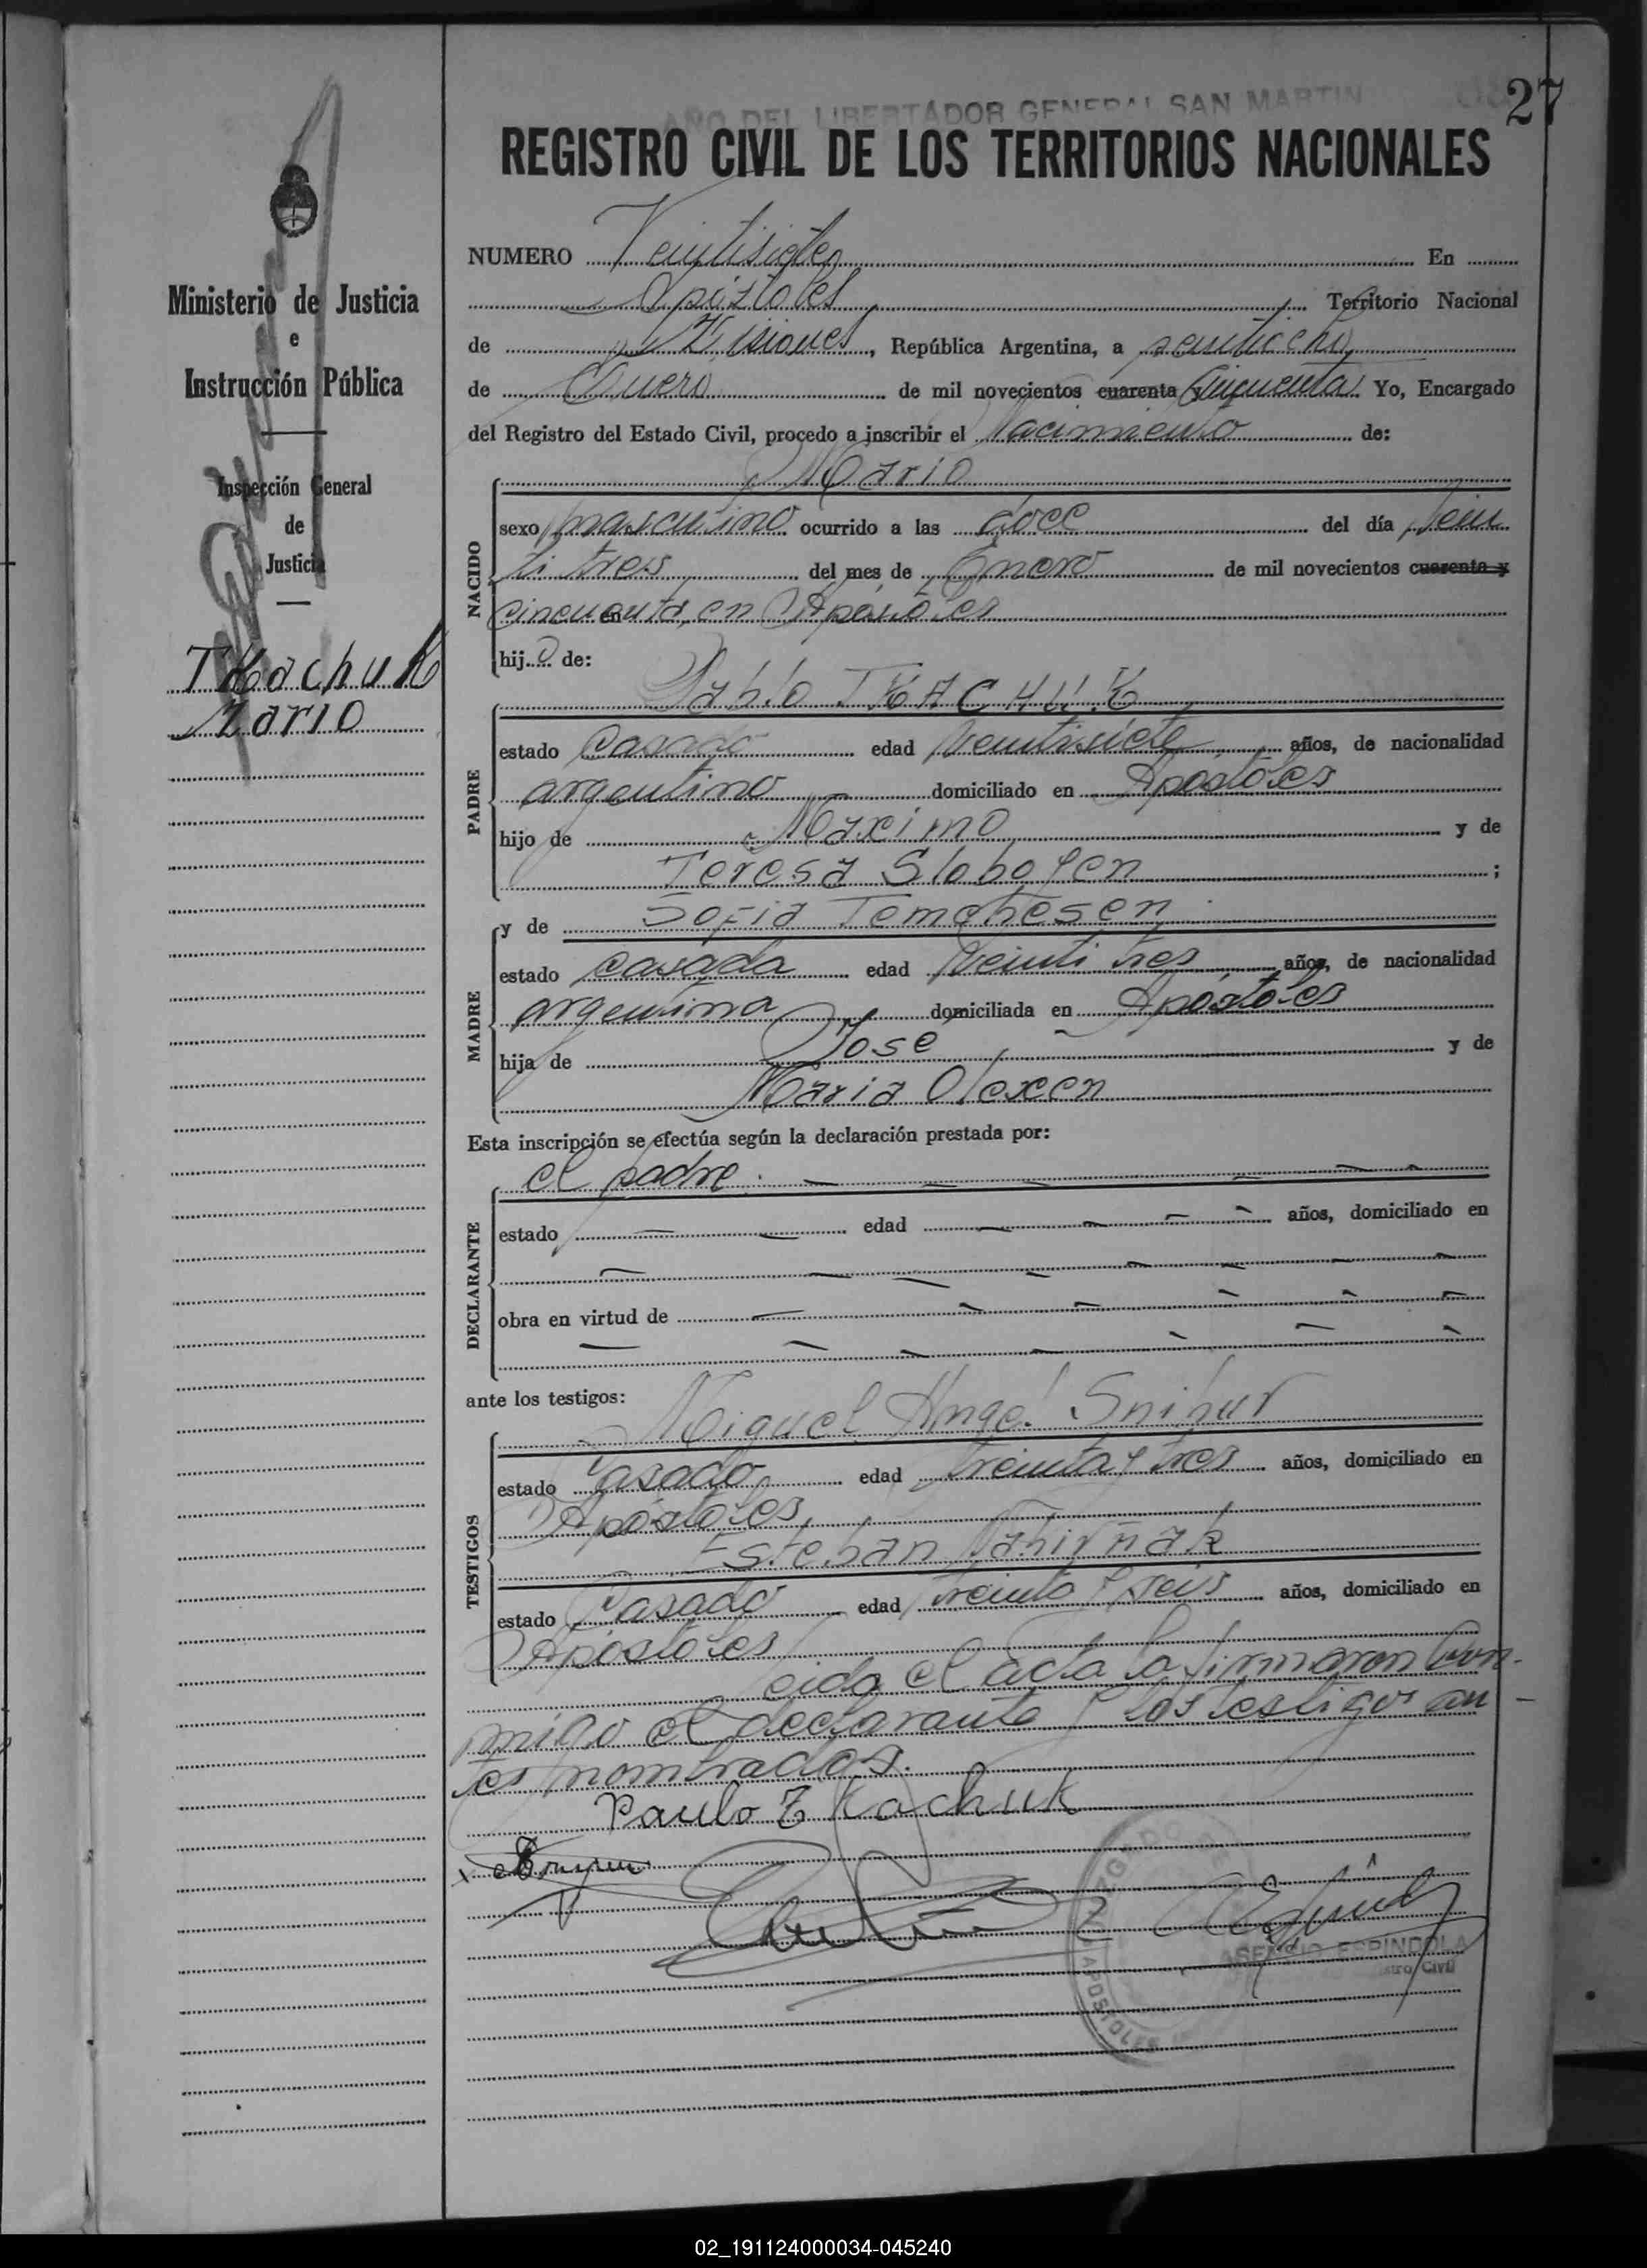 27
AÑO DEL LIBERTADOR GENERAL SAN MARTIN
REGISTRO CIVIL DE LOS TERRITORIOS NACIONALES
Ministerio de Justicia
e
Instrucción Pública
Inspección General
de
Justicia
Tkachuk
Mario
NUMERO Veintisiete En
Apóstoles Territorio Nacional
de Misiones, República Argentina, a veintiocho
de Enero de mil novecientos cuarenta y cincuenta. Yo, Encargado
del Registro del Estado Civil, procedo a inscribir el Nacimiento de:
NACIDO
Mario
sexo masculino ocurrido a las doce del día vein
ti tres del mes de Enero de mil novecientos cuarenta y
cincuenta, en Apóstoles
hijo de:
PADRE
Pablo TKACHUK
estado Casado edad veintisiete años, de nacionalidad
argentino domiciliado en Apóstoles
hijo de Maximo y de
Teresa Slobogen;
MADRE
y de Sofia Temchesen
estado casada edad veinti tres años, de nacionalidad
argentina domiciliada en Apóstoles
hija de José y de
Maria Olexen
Esta inscripción se efectúa según la declaración prestada por:
DECLARANTE
el padre.
estado edad años, domiciliado en
obra en virtud de
ante los testigos:
TESTIGOS
Miguel Angel Snihur
estado Casado edad treinta y tres años, domiciliado en
Apóstoles,
Esteban Nahirñak
estado Casado edad treinta y seis años, domiciliado en
Apóstoles
Leida el acta la firmaron con-
migo el declarante y los testigos an-
tes nombrados.
Paulo Tkachuk
ENCARGADO
APOSTOLES
ASENCIO ESPINDOLA
Registro Civil
02_191124000034-045240